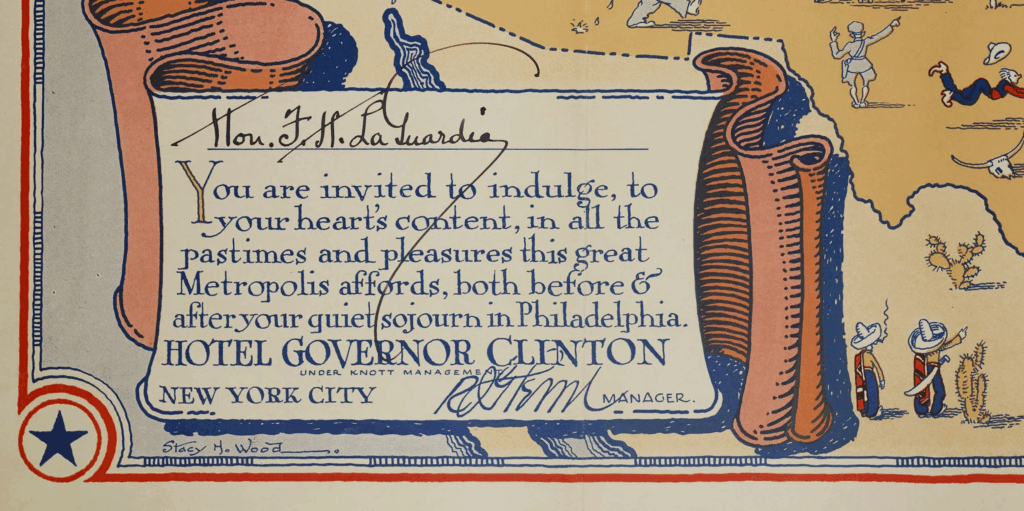 Hon. F. H. La Guardia
You are invited to indulge, to
your heart's content, in all the
pastimes and pleasures this great
Metropolis affords, both before &
after your quiet sojourn in Philadelphia.
HOTEL GOVERNOR CLINTON
UNDER KNOTT MANAGEMENT
NEW YORK CITY MANAGER.
Stacy H. Wood